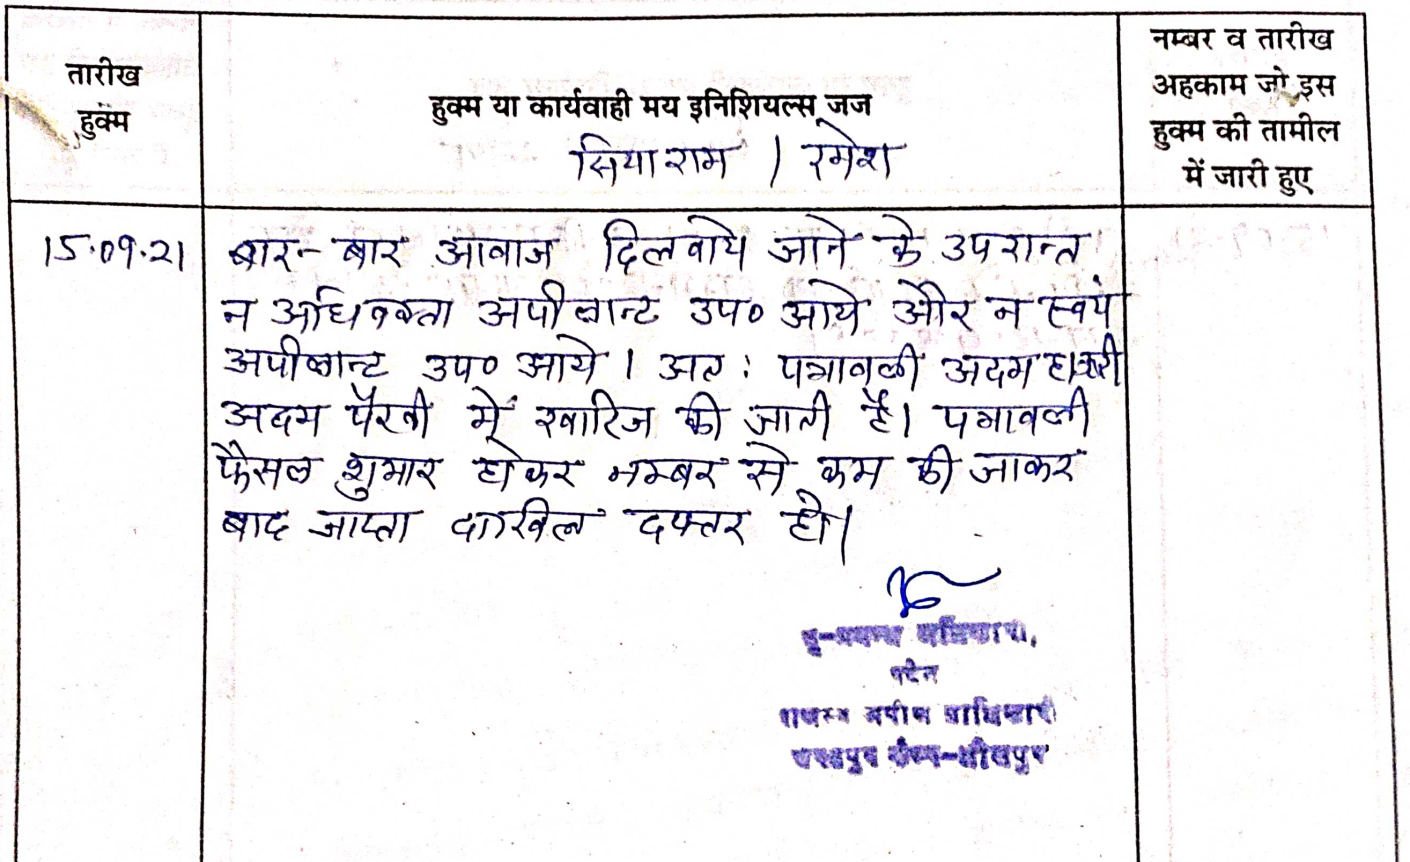 तारीख
हुक्म
हुक्म या कार्यवाही मय इनिशियल्स जज
नम्बर व तारीख
अहकाम जो इस
हुक्म की तामील
में जारी हुए
सियाराम / रमेश
15.09.21
बार-बार आवाज दिलवाये जाने के उपरान्त
न अधिवक्ता अपीलान्ट उप० आये और न स्वयं
अपीलान्ट उप० आये । अतः पत्रावली अदम हाजरी
अदम पैरवी में खारिज की जाती है। पत्रावली
फैसल शुमार होकर नम्बर से कम की जाकर
बाद जाप्ता दाखिल दफ्तर हो।
भू-प्रबन्ध अधिकारी,
पदेन
राजस्व अपील अधिकारी